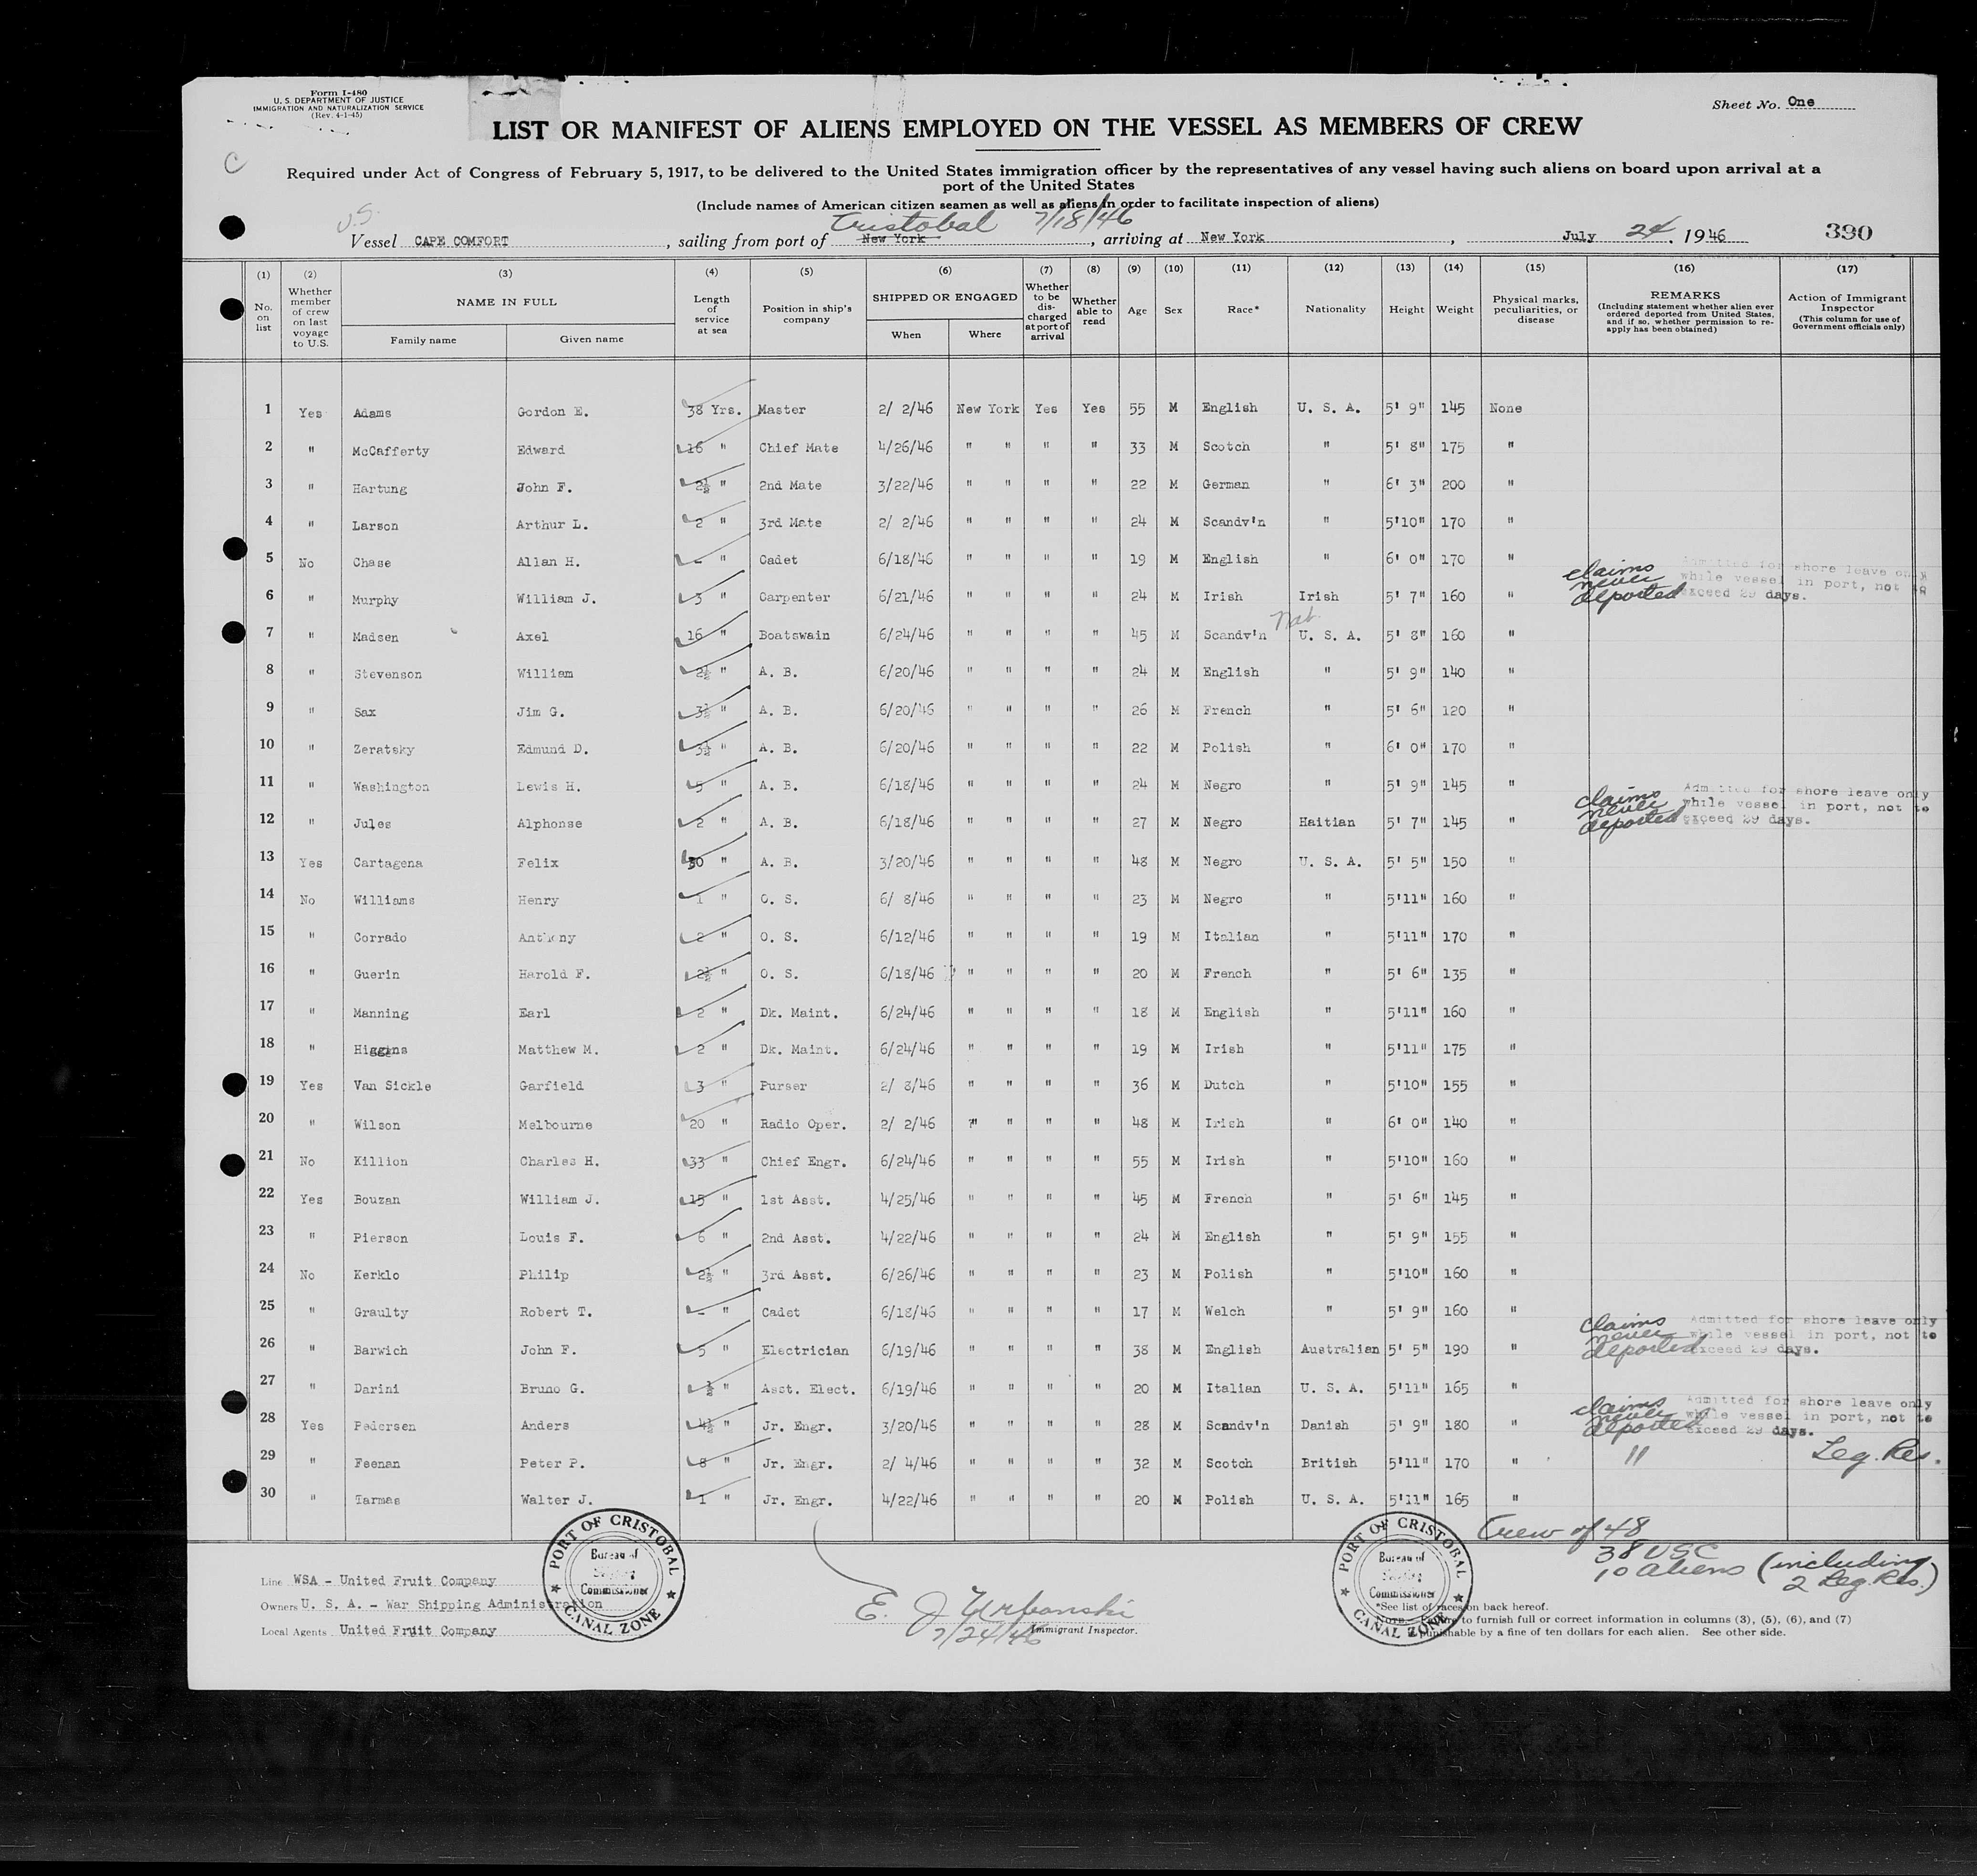 Form I-480
U. S. DEPARTMENT OF JUSTICE
IMMIGRATION AND NATURALIZATION SERVICE
(Rev. 4-1-45)
Sheet No. One
LIST OR MANIFEST OF ALIENS EMPLOYED ON THE VESSEL AS MEMBERS OF CREW
C
Required under Act of Congress of February 5, 1917, to be delivered to the United States immigration officer by the representatives of any vessel having such aliens on board upon arrival at a
port of the United States
(Include names of American citizen seamen as well as aliens in order to facilitate inspection of aliens)
U.S. Cristobal 7/18/46
Vessel CAPE COMFORT, sailing from port of New York, arriving at New York, July 24, 1946 390
(1) (2) (3) (4) (5) (6) (7) (8) (9) (10) (11) (12) (13) (14) (15) (16) (17)
No. on list Whether member of crew on last voyage to U.S. NAME IN FULL Family name Given name Length of service at sea Position in ship's company SHIPPED OR ENGAGED When Where Whether to be discharged at port of arrival Whether able to read Age Sex Race* Nationality Height Weight Physical marks, peculiarities, or disease REMARKS (Including statement whether alien ever ordered deported from United States, and if so, whether permission to reapply has been obtained) Action of Immigrant Inspector (This column for use of Government officials only)
1 Yes Adams Gordon E. 38 Yrs. Master 2/ 2/46 New York Yes Yes 55 M English U. S. A. 5' 9" 145 None
2 " McCafferty Edward 16 " Chief Mate 4/26/46 " " " " 33 M Scotch " 5' 8" 175 "
3 " Hartung John F. 2½ " 2nd Mate 3/22/46 " " " " 22 M German " 6' 3" 200 "
4 " Larson Arthur L. 2 " 3rd Mate 2/ 2/46 " " " " 24 M Scandv'n " 5'10" 170 "
5 No Chase Allan H. - " Cadet 6/18/46 " " " " 19 M English " 6' 0" 170 "
6 " Murphy William J. 3 " Carpenter 6/21/46 " " " " 24 M Irish Irish 5' 7" 160 " claims never deported Admitted for shore leave only while vessel in port, not to exceed 29 days.
7 " Madsen Axel 16 " Boatswain 6/24/46 " " " " 45 M Scandv'n Nat. U. S. A. 5' 8" 160 "
8 " Stevenson William 2½ " A. B. 6/20/46 " " " " 24 M English " 5' 9" 140 "
9 " Sax Jim G. 3½ " A. B. 6/20/46 " " " " 26 M French " 5' 6" 120 "
10 " Zeratsky Edmund D. 3½ " A. B. 6/20/46 " " " " 22 M Polish " 6' 0" 170 "
11 " Washington Lewis H. 5 " A. B. 6/18/46 " " " " 24 M Negro " 5' 9" 145 "
12 " Jules Alphonse 2 " A. B. 6/18/46 " " " " 27 M Negro Haitian 5' 7" 145 " claims never deported Admitted for shore leave only while vessel in port, not to exceed 29 days.
13 Yes Cartagena Felix 30 " A. B. 3/20/46 " " " " 48 M Negro U. S. A. 5' 5" 150 "
14 No Williams Henry 1 " O. S. 6/ 8/46 " " " " 23 M Negro " 5'11" 160 "
15 " Corrado Anthony 2 " O. S. 6/12/46 " " " " 19 M Italian " 5'11" 170 "
16 " Guerin Harold F. 2½ " O. S. 6/18/46 " " " " 20 M French " 5' 6" 135 "
17 " Manning Earl 2 " Dk. Maint. 6/24/46 " " " " 18 M English " 5'11" 160 "
18 " Higgins Matthew M. 2 " Dk. Maint. 6/24/46 " " " " 19 M Irish " 5'11" 175 "
19 Yes Van Sickle Garfield 3 " Purser 2/ 8/46 " " " " 36 M Dutch " 5'10" 155 "
20 " Wilson Melbourne 20 " Radio Oper. 2/ 2/46 " " " " 48 M Irish " 6' 0" 140 "
21 No Killion Charles H. 33 " Chief Engr. 6/24/46 " " " " 55 M Irish " 5'10" 160 "
22 Yes Bouzan William J. 15 " 1st Asst. 4/25/46 " " " " 45 M French " 5' 6" 145 "
23 " Pierson Louis F. 6 " 2nd Asst. 4/22/46 " " " " 24 M English " 5' 9" 155 "
24 No Kerklo Philip 2½ " 3rd Asst. 6/26/46 " " " " 23 M Polish " 5'10" 160 "
25 " Graulty Robert T. - " Cadet 6/18/46 " " " " 17 M Welch " 5' 9" 160 "
26 " Barwich John F. 5 " Electrician 6/19/46 " " " " 38 M English Australian 5' 5" 190 " claims never deported Admitted for shore leave only while vessel in port, not to exceed 29 days.
27 " Darini Bruno G. ½ " Asst. Elect. 6/19/46 " " " " 20 M Italian U. S. A. 5'11" 165 "
28 Yes Pedersen Anders 4½ " Jr. Engr. 3/20/46 " " " " 28 M Scandv'n Danish 5' 9" 180 " claims never deported Admitted for shore leave only while vessel in port, not to exceed 29 days.
29 " Feenan Peter P. 8 " Jr. Engr. 2/ 4/46 " " " " 32 M Scotch British 5'11" 170 " " Leg. Res.
30 " Tarmas Walter J. 1 " Jr. Engr. 4/22/46 " " " " 20 M Polish U. S. A. 5'11" 165 "
Crew of 48
38 USC
10 aliens (including 2 Leg. Res.)
PORT OF CRISTOBAL Bureau of Shipping Commissioner CANAL ZONE
PORT OF CRISTOBAL Bureau of Shipping Commissioner CANAL ZONE
Line WSA - United Fruit Company
Owners U. S. A. - War Shipping Administration
Local Agents United Fruit Company
E. J. Urbanski
7/24/46 Immigrant Inspector.
*See list of races on back hereof.
NOTE.—Failure to furnish full or correct information in columns (3), (5), (6), and (7)
is punishable by a fine of ten dollars for each alien. See other side.